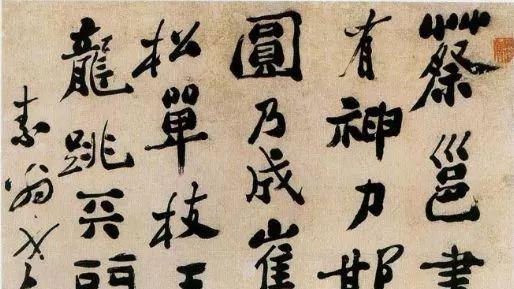 蔡邕書
有神力
圓乃成崔
松單枝
龍跳天
素翁